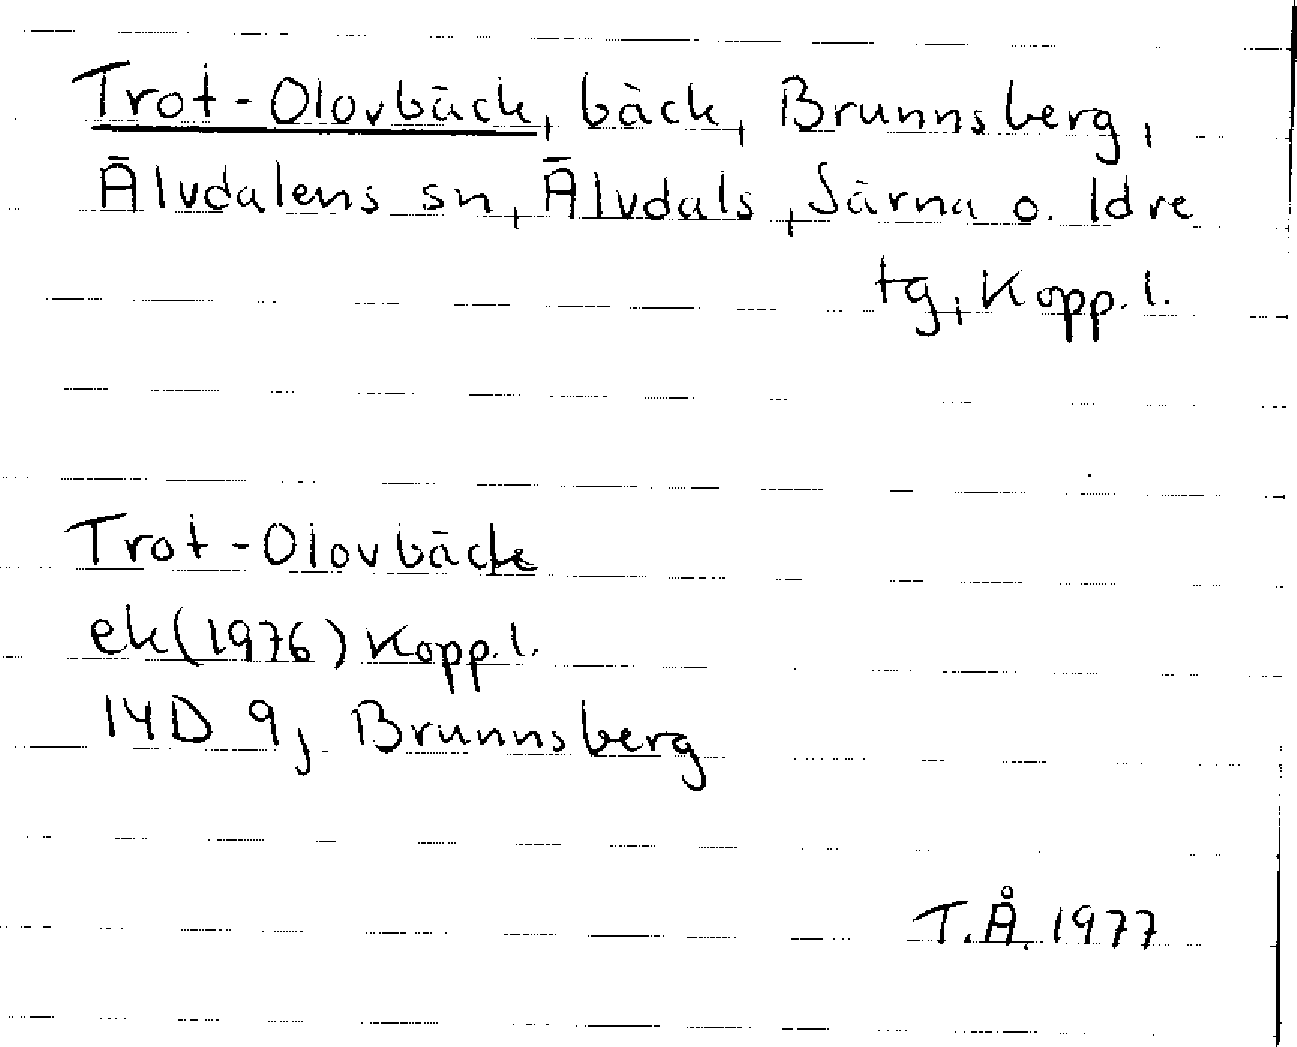 Trot-Olovbäck, bäck, Brunnsberg,
Älvdalens sn, Älvdals, Särna o. Idre
tg, Kopp. l.
Trot-Olovbäck
ek(1976) Kopp. l.
14D 9j Brunnsberg
T.Å. 1977